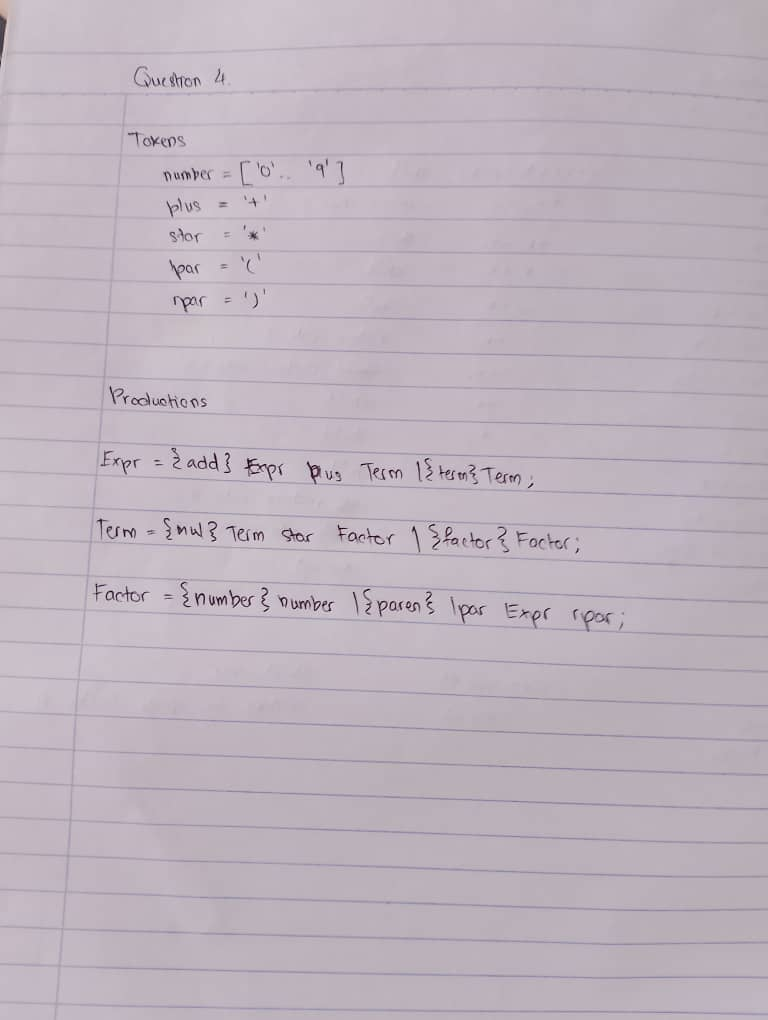 Question 4.
Tokens
number = ['0'.. '9']
plus = '+'
star = '*'
lpar = '('
rpar = ')'
Productions
Expr = {add} Expr plus Term |{term} Term;
Term = {mul} Term star Factor | {factor} Factor;
Factor = {number} number |{paren} lpar Expr rpar;